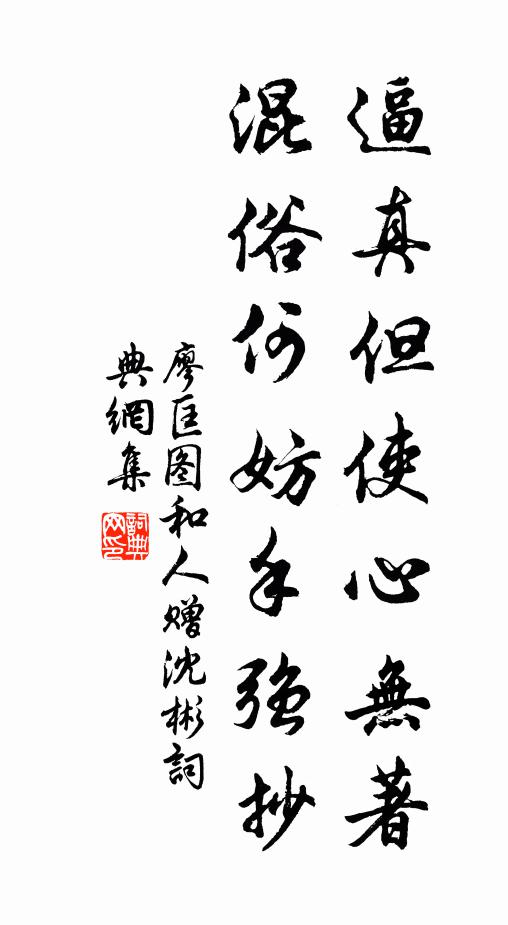 逼真但使心無著
混俗何妨手強抄
廖匡图和人赠沈彬詞
典網集
詞典
网印